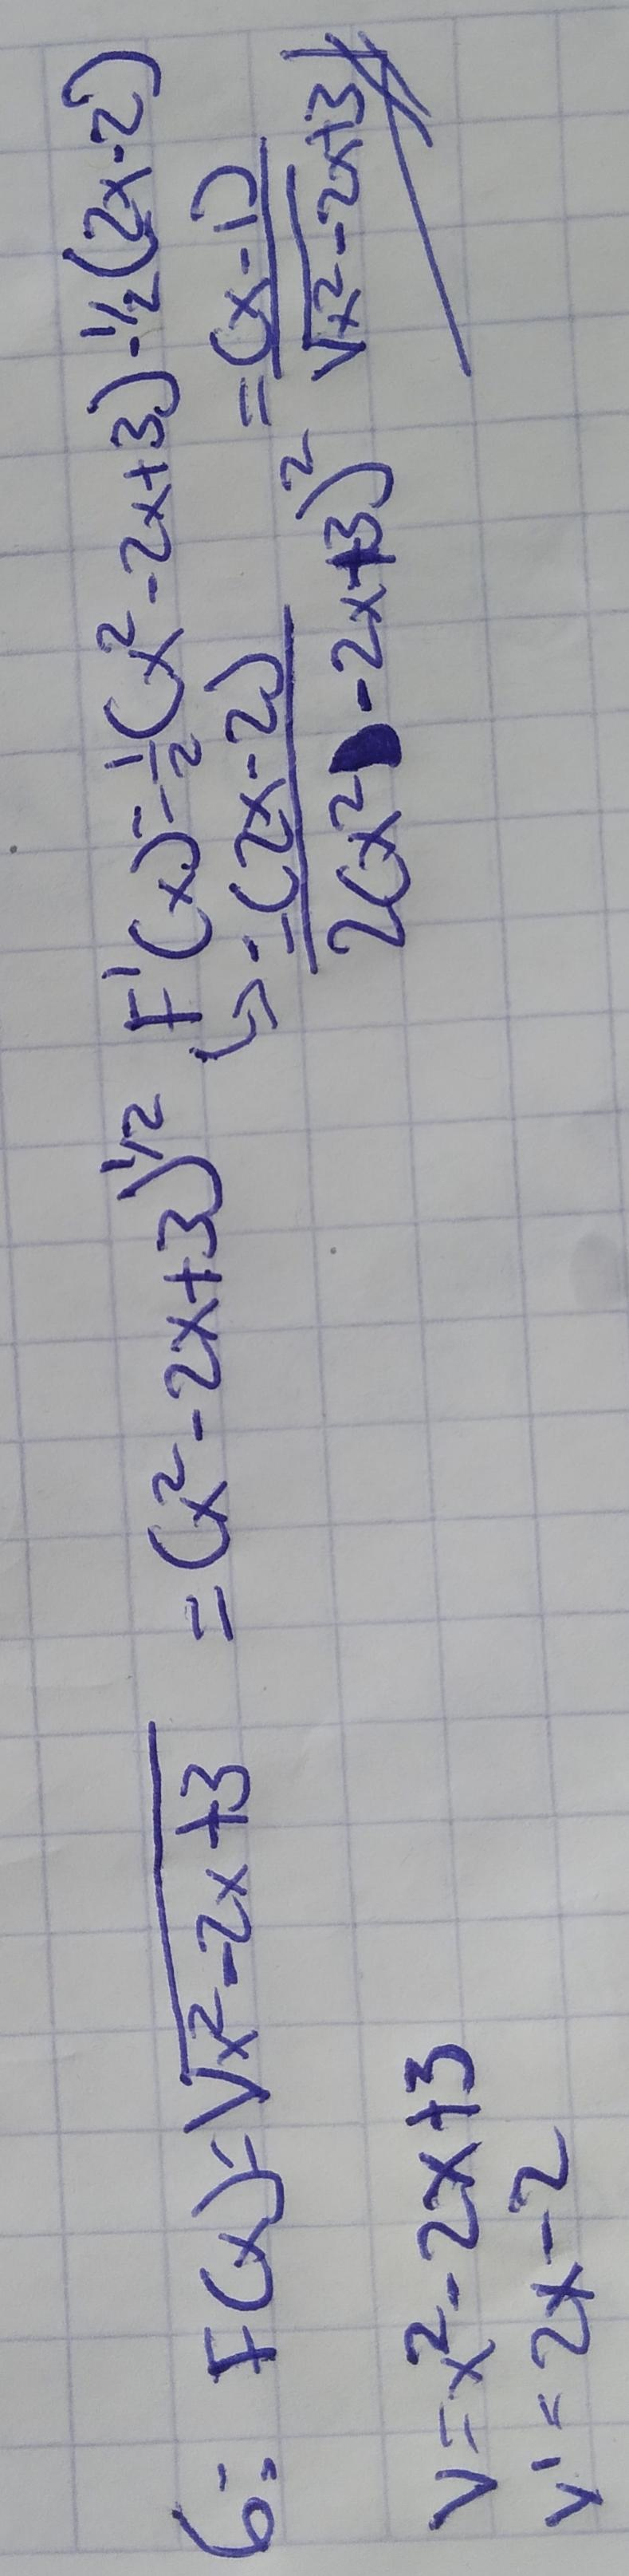 6:- F(x)=√x²-2x+3 =(x²-2x+3)^1/2 F'(x)=1/2(x²-2x+3)-^1/2(2x-2)
↳=(2x-2)/2(x²-2x+3)^2 =(x-1)/√x²-2x+3
v=x²-2x+3
v'=2x-2